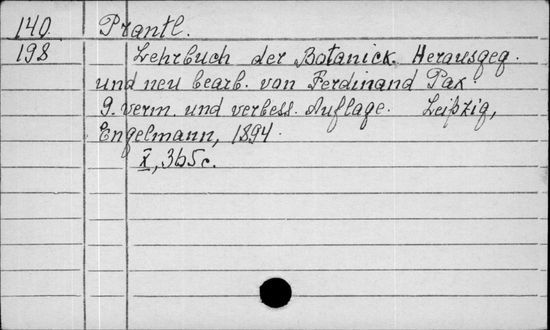 140 Prantl.
198 Lehrbuch der Botanick. Herausgeg.
und neu bearb. von Ferdinand Pax.
9. verm. und verbess. Auflage. Leipzig,
Engelmann, 1894.
X, 365 c.